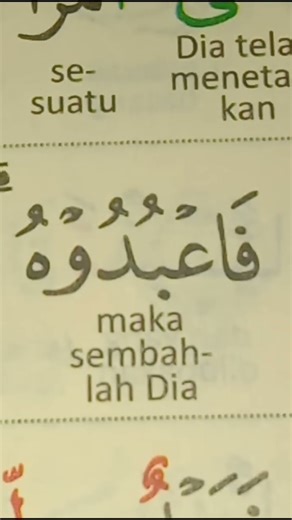 se-
suatu
Dia tela
meneta
kan
فَاعْبُدُوْهُ
maka
sembah-
lah Dia